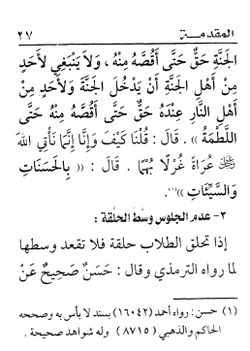 المقدمـــة ٢٧
الْجَنَّةِ حَقٌّ حَتَّى أَقُصَّهُ مِنْهُ ، وَلَا يَنْبَغِي لِأَحَدٍ
مِنْ أَهْلِ الْجَنَّةِ أَنْ يَدْخُلَ الْجَنَّةَ وَلِأَحَدٍ مِنْ
أَهْلِ النَّارِ عِنْدَهُ حَقٌّ حَتَّى أَقُصَّهُ مِنْهُ حَتَّى
اللَّطْمَةُ » . قَالَ : قُلْنَا كَيْفَ وَإِنَّا إِنَّمَا نَأْتِي اللهَ
عُرَاةً غُرْلًا بُهْمًا . قَالَ : « بِالْحَسَنَاتِ
وَالسَّيِّئَاتِ »(١).
٣- عدم الجلوس وسط الحلقة :
إذا تحلق الطلاب حلقة فلا تقعد وسطها
لما رواه الترمذي وقال : حَسَنٌ صَحِيحٌ عَنْ
(١) حسن : رواه أحمد (١٦٠٤٢) بسند لا بأس به وصححه
الحاكم والذهبي (٨٧١٥) وله شواهد صحيحة .